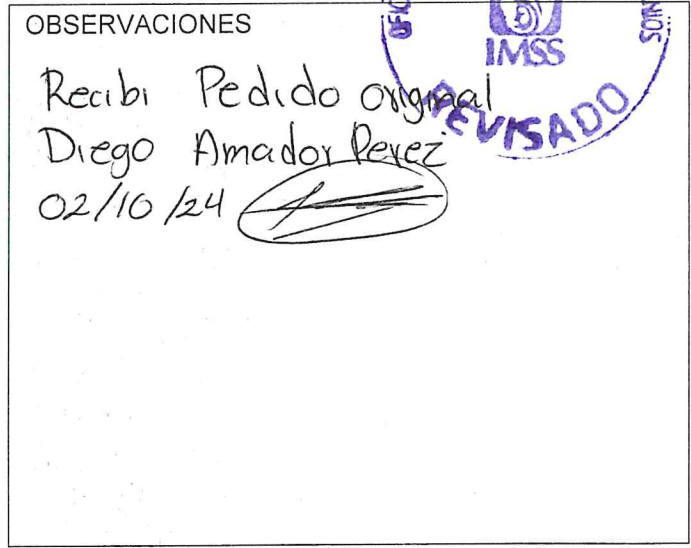 OBSERVACIONES
IMSS
REVISADO
Recibi Pedido original
Diego Amador Perez
02/10/24